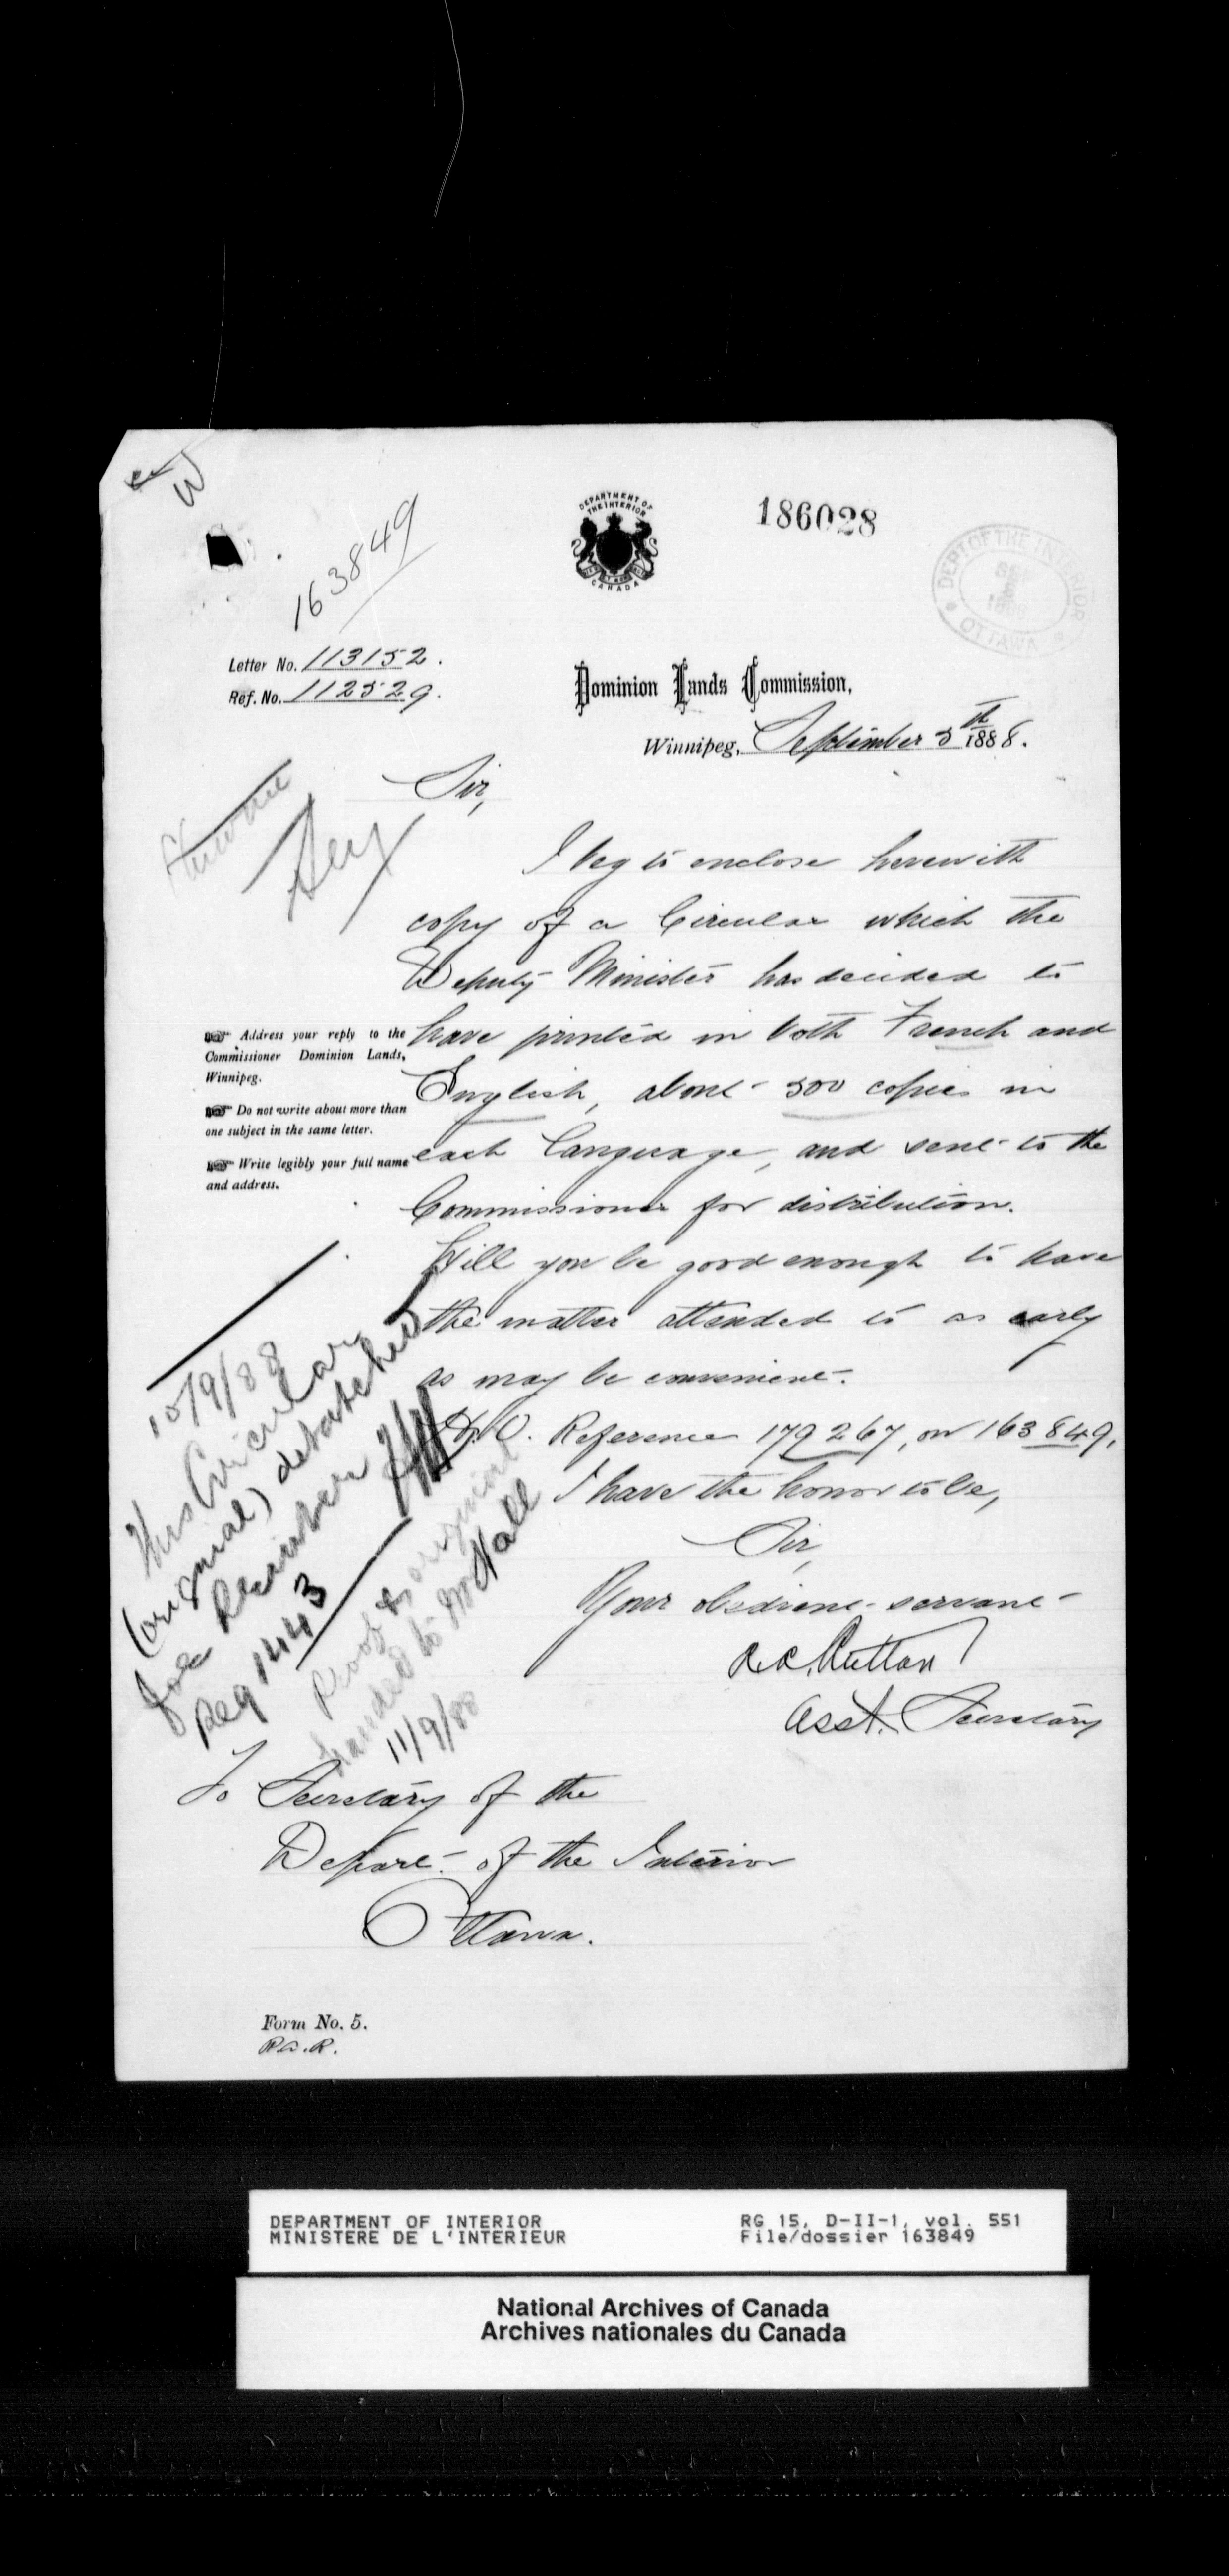 W
163849
DEPARTMENT OF
THE INTERIOR
CANADA
186028
DEPT OF THE INTERIOR
1888
OTTAWA
Letter No. 113152.
Ref. No. 112529.
Dominion Lands Commission,
Winnipeg, September 5th 1888.
Sir,
I beg to enclose herewith
copy of a Circular which the
Deputy Minister has decided to
have printed in both French and
English, about 500 copies in
each language, and sent to the
Commissioner for distribution.
Will you be good enough to have
the matter attended to as early
as may be convenient.
H.O. Reference 179267, on 163849,
I have the honor to be,
Sir,
Your obedient servant
R.A. Ruttan
Asst. Secretary
Address your reply to the
Commissioner Dominion Lands,
Winnipeg.
Do not write about more than
one subject in the same letter.
Write legibly your full name
and address.
10/9/88
This Circular
(original) detatched
for Printer
Req 1443
Proof & original
handed to McNall
11/9/88
To Secretary of the
Depart. of the Interior
Ottawa.
Form No. 5.
R.A.R.
DEPARTMENT OF INTERIOR
MINISTERE DE L'INTERIEUR
RG 15, D-II-1, vol. 551
File/dossier 163849
National Archives of Canada
Archives nationales du Canada